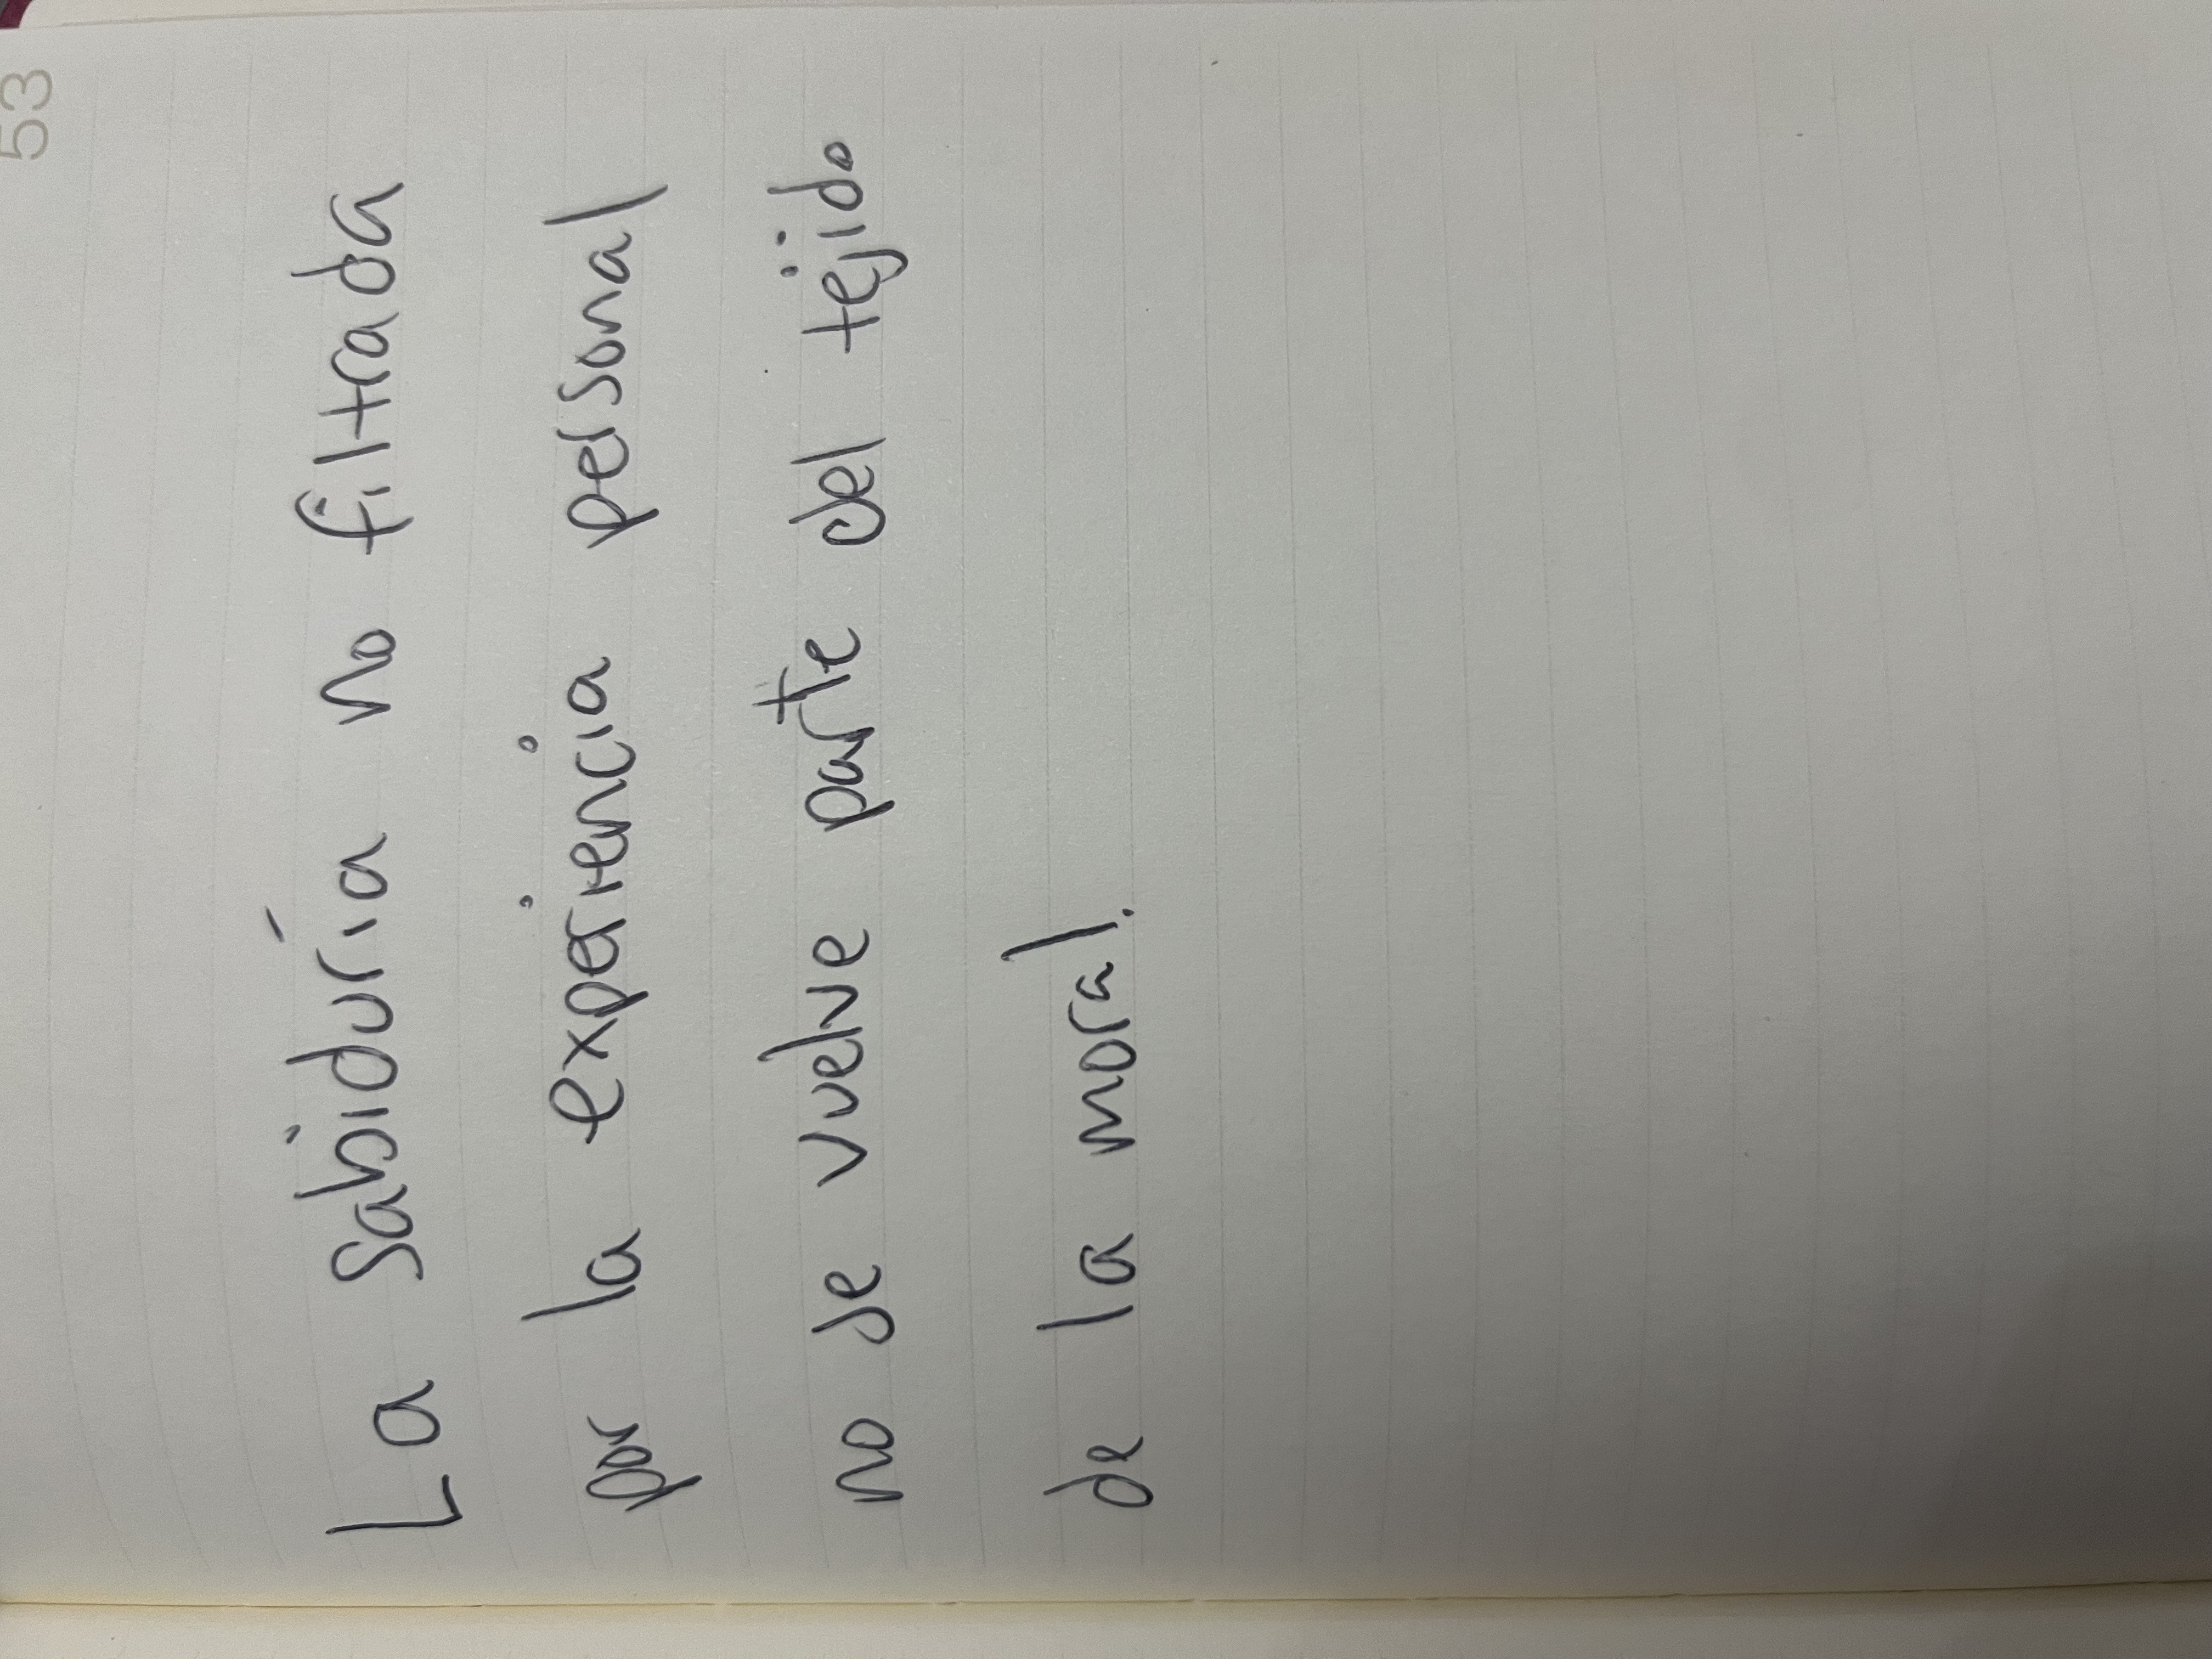 53
La sabiduría no filtrada
por la experiencia personal
no se vuelve parte del tejido
de la moral.